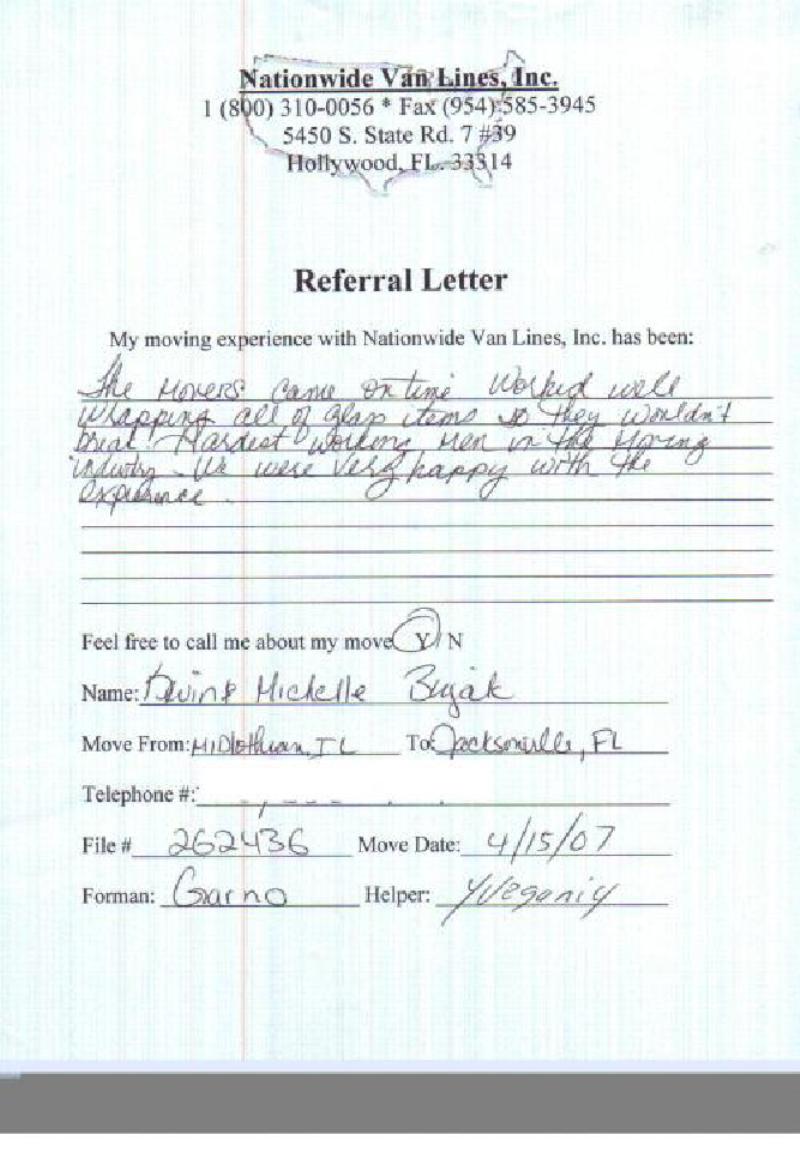 Nationwide Van Lines, Inc.
1 (800) 310-0056 * Fax (954) 585-3945
5450 S. State Rd. 7 #39
Hollywood, FL. 33314
Referral Letter
My moving experience with Nationwide Van Lines, Inc. has been:
The Movers came on time Worked well
wrapping all of glass items so they wouldn't
break. Hardest working Men in the Moving
industry. We were very happy with the
experience.
Feel free to call me about my move Y / N
Name: & Michelle Bujak
Move From: Midlothian, IL To: Jacksonville, FL
Telephone #:
File # 262436 Move Date: 4/15/07
Forman: Garno Helper: